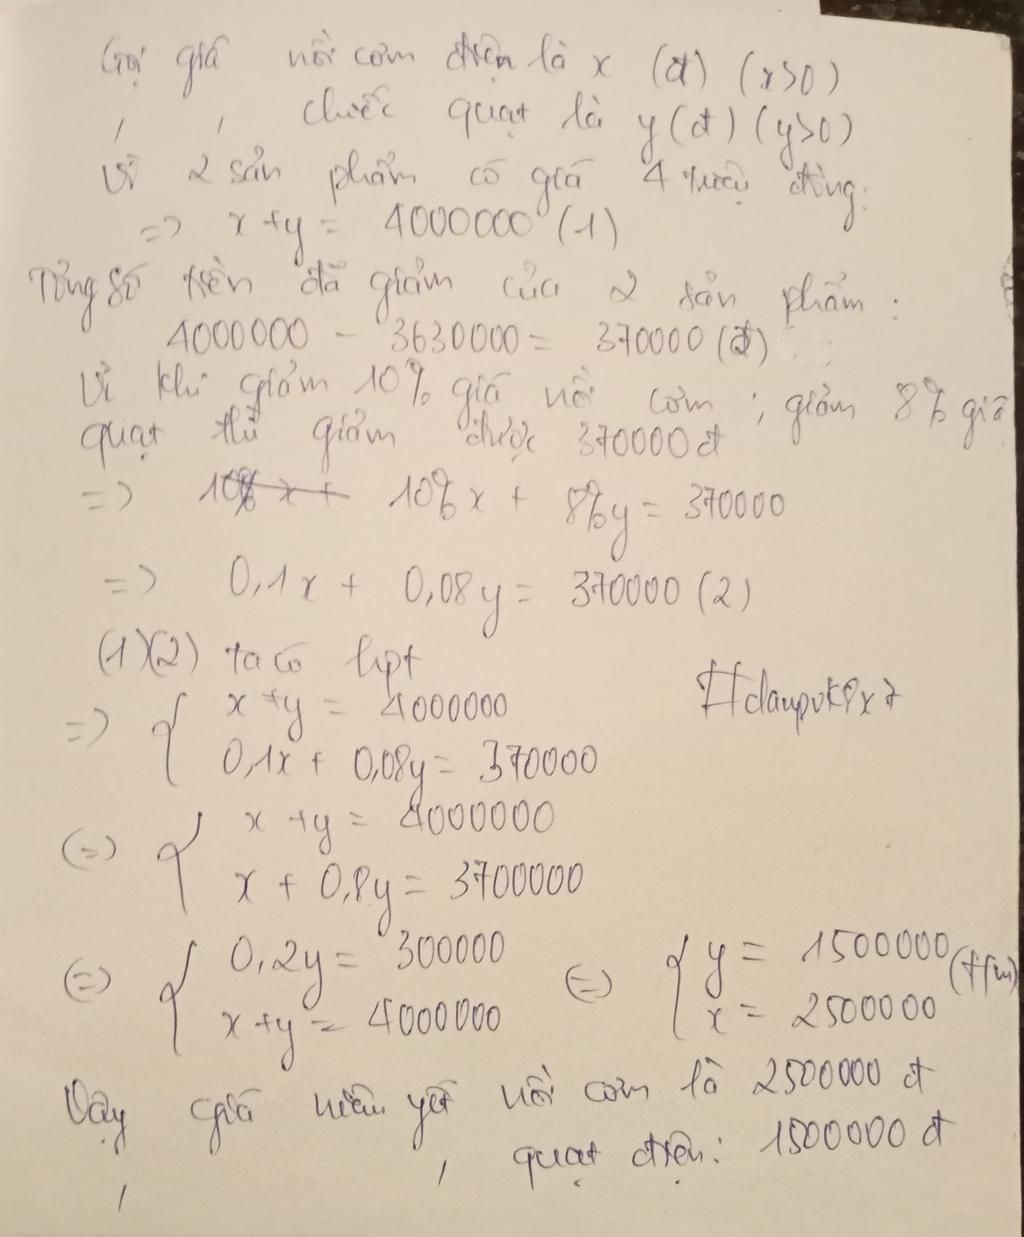 Gọi giá nồi cơm điện là x (đ) (x>0)
, , chiếc quạt là y (đ) (y>0)
Vì 2 sản phẩm có giá 4 triệu đồng:
=> x+y = 4000000 (1)
Tổng số tiền đã giảm của 2 sản phẩm:
4000000 - 3630000 = 370000 (đ)
Vì khi giảm 10% giá nồi cơm ; giảm 8% giá
quạt thì giảm được 370000 đ
=> 10% x + 10% x + 8% y = 370000
=> 0,1x + 0,08y = 370000 (2)
(1)(2) ta có hpt
=> { x+y = 4000000
0,1x + 0,08y = 370000
(=) { x+y = 4000000
x + 0,8y = 3700000
(=) { 0,2y = 300000 (=) { y = 1500000 (t/m)
x+y = 4000000 x = 2500000
Vậy giá niêm yết nồi cơm là 2500000 đ
, , quạt điện: 1500000 đ